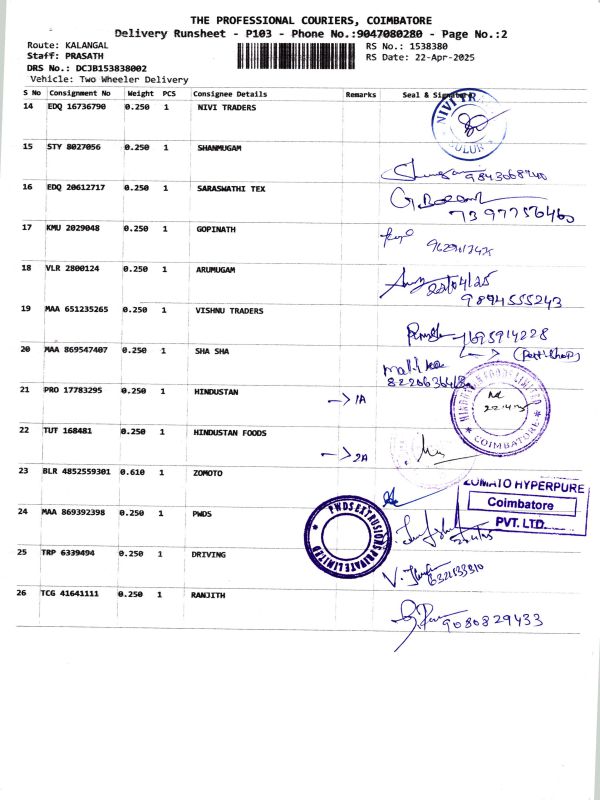 THE PROFESSIONAL COURIERS, COIMBATORE
Delivery Runsheet - P103 - Phone No.:9047080280 - Page No.:2
Route: KALANGAL RS No.: 1538380
Staff: PRASATH RS Date: 22-Apr-2025
DRS No.: DCJB153838002
Vehicle: Two Wheeler Delivery
S No Consignment No Weight PCS Consignee Details Remarks Seal & Signature
14 EDQ 16736790 0.250 1 NIVI TRADERS
15 STY 8027056 0.250 1 SHANMUGAM
16 EDQ 20612717 0.250 1 SARASWATHI TEX
7397756460
17 KMU 2029048 0.250 1 GOPINATH
18 VLR 2800124 0.250 1 ARUMUGAM
22/04/25
9894555243
19 MAA 651235265 0.250 1 VISHNU TRADERS
20 MAA 869547407 0.250 1 SHA SHA
21 PRO 17783295 1 0.250 HINDUSTAN → 1A
COIMBATORE
22 TUT 168481 0.250 1 HINDUSTAN FOODS → 2A
23 BLR 4852559301 0.610 1 ZOMOTO
ZOMATO HYPERPURE
Coimbatore
PVT. LTD.
24 MAA 869392398 0.250 1 PWDS
PWDS EXTRUSIONS PRIVATE LIMITED
25 TRP 6339494 0.250 1 DRIVING
26 TCG 41641111 0.250 1 RANJITH
9080829433